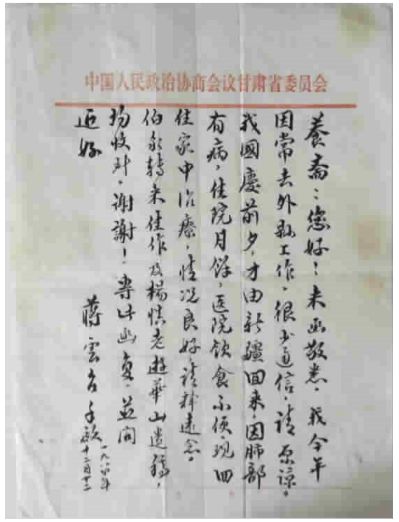 中国人民政治协商会议甘肃省委员会
養斋：您好！来函敬悉，我今年
因常去外勤工作，很少通信，请原谅。
我國慶前夕，才由新疆回来，因肺部
有病，住院月餘，医院飲食不便，现回
住家中治療，情况良好，请释遠念。
伯永轉来佳作及楊慎老遊華山遺稿，
均收到，谢謝！专此函复，並问
近好
蔣雲台手啟
一九八六年
十二月十二